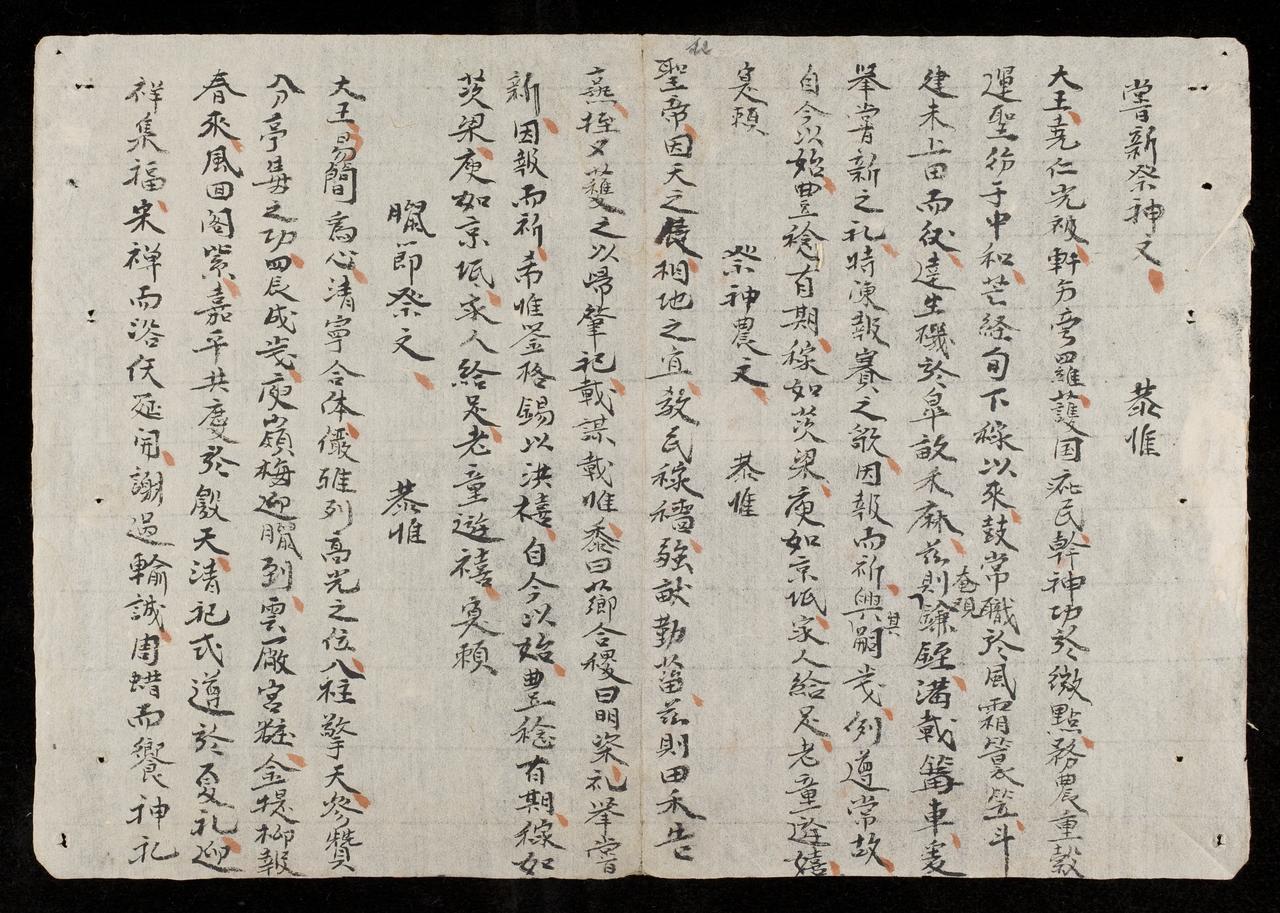 嘗新祭神文　恭惟
大王堯仁光被軒方旁羅護国庇民幹神功於微點務農重穀
運聖於于中和芒経旬下稼以來鼓常職於風霜簑笠斗
建未上田而役達生機於皐畝禾麻茲則鐮銍満載篝車爰
奄覌
舉嘗新之礼特陳報賽之歌因報而祈興嗣歲例遵常故
其
自今以始豊稔有期稼如茨梁庾如京坻家人給足老童遊嬉
寔頼　祭神農文　恭惟
聖帝因天之時相地之宜教民稼穡強猷勤菑茲則田禾告
熏挃又蓷之以歸肇祀載謀載惟黍曰薌合稷曰明粢礼舉嘗
新因報而祈希惟鉴格錫以洪禧自今以始豊稔有期稼如
茨梁庾如京坻家人給足老童遊禧寔頼
臘節祭文　恭惟
大王易簡為心清寧合体儼雖列高光之位八柱擎天參贊
分亭毒之功四辰成歲庾嶺梅迎臘到雲廠宮粧金堤柳報
春來風回閣紫嘉平共慶於殷天清祀式遵於夏礼迎
祥集福宋禅而浴伕延開謝過輸誠周蜡而饗神礼